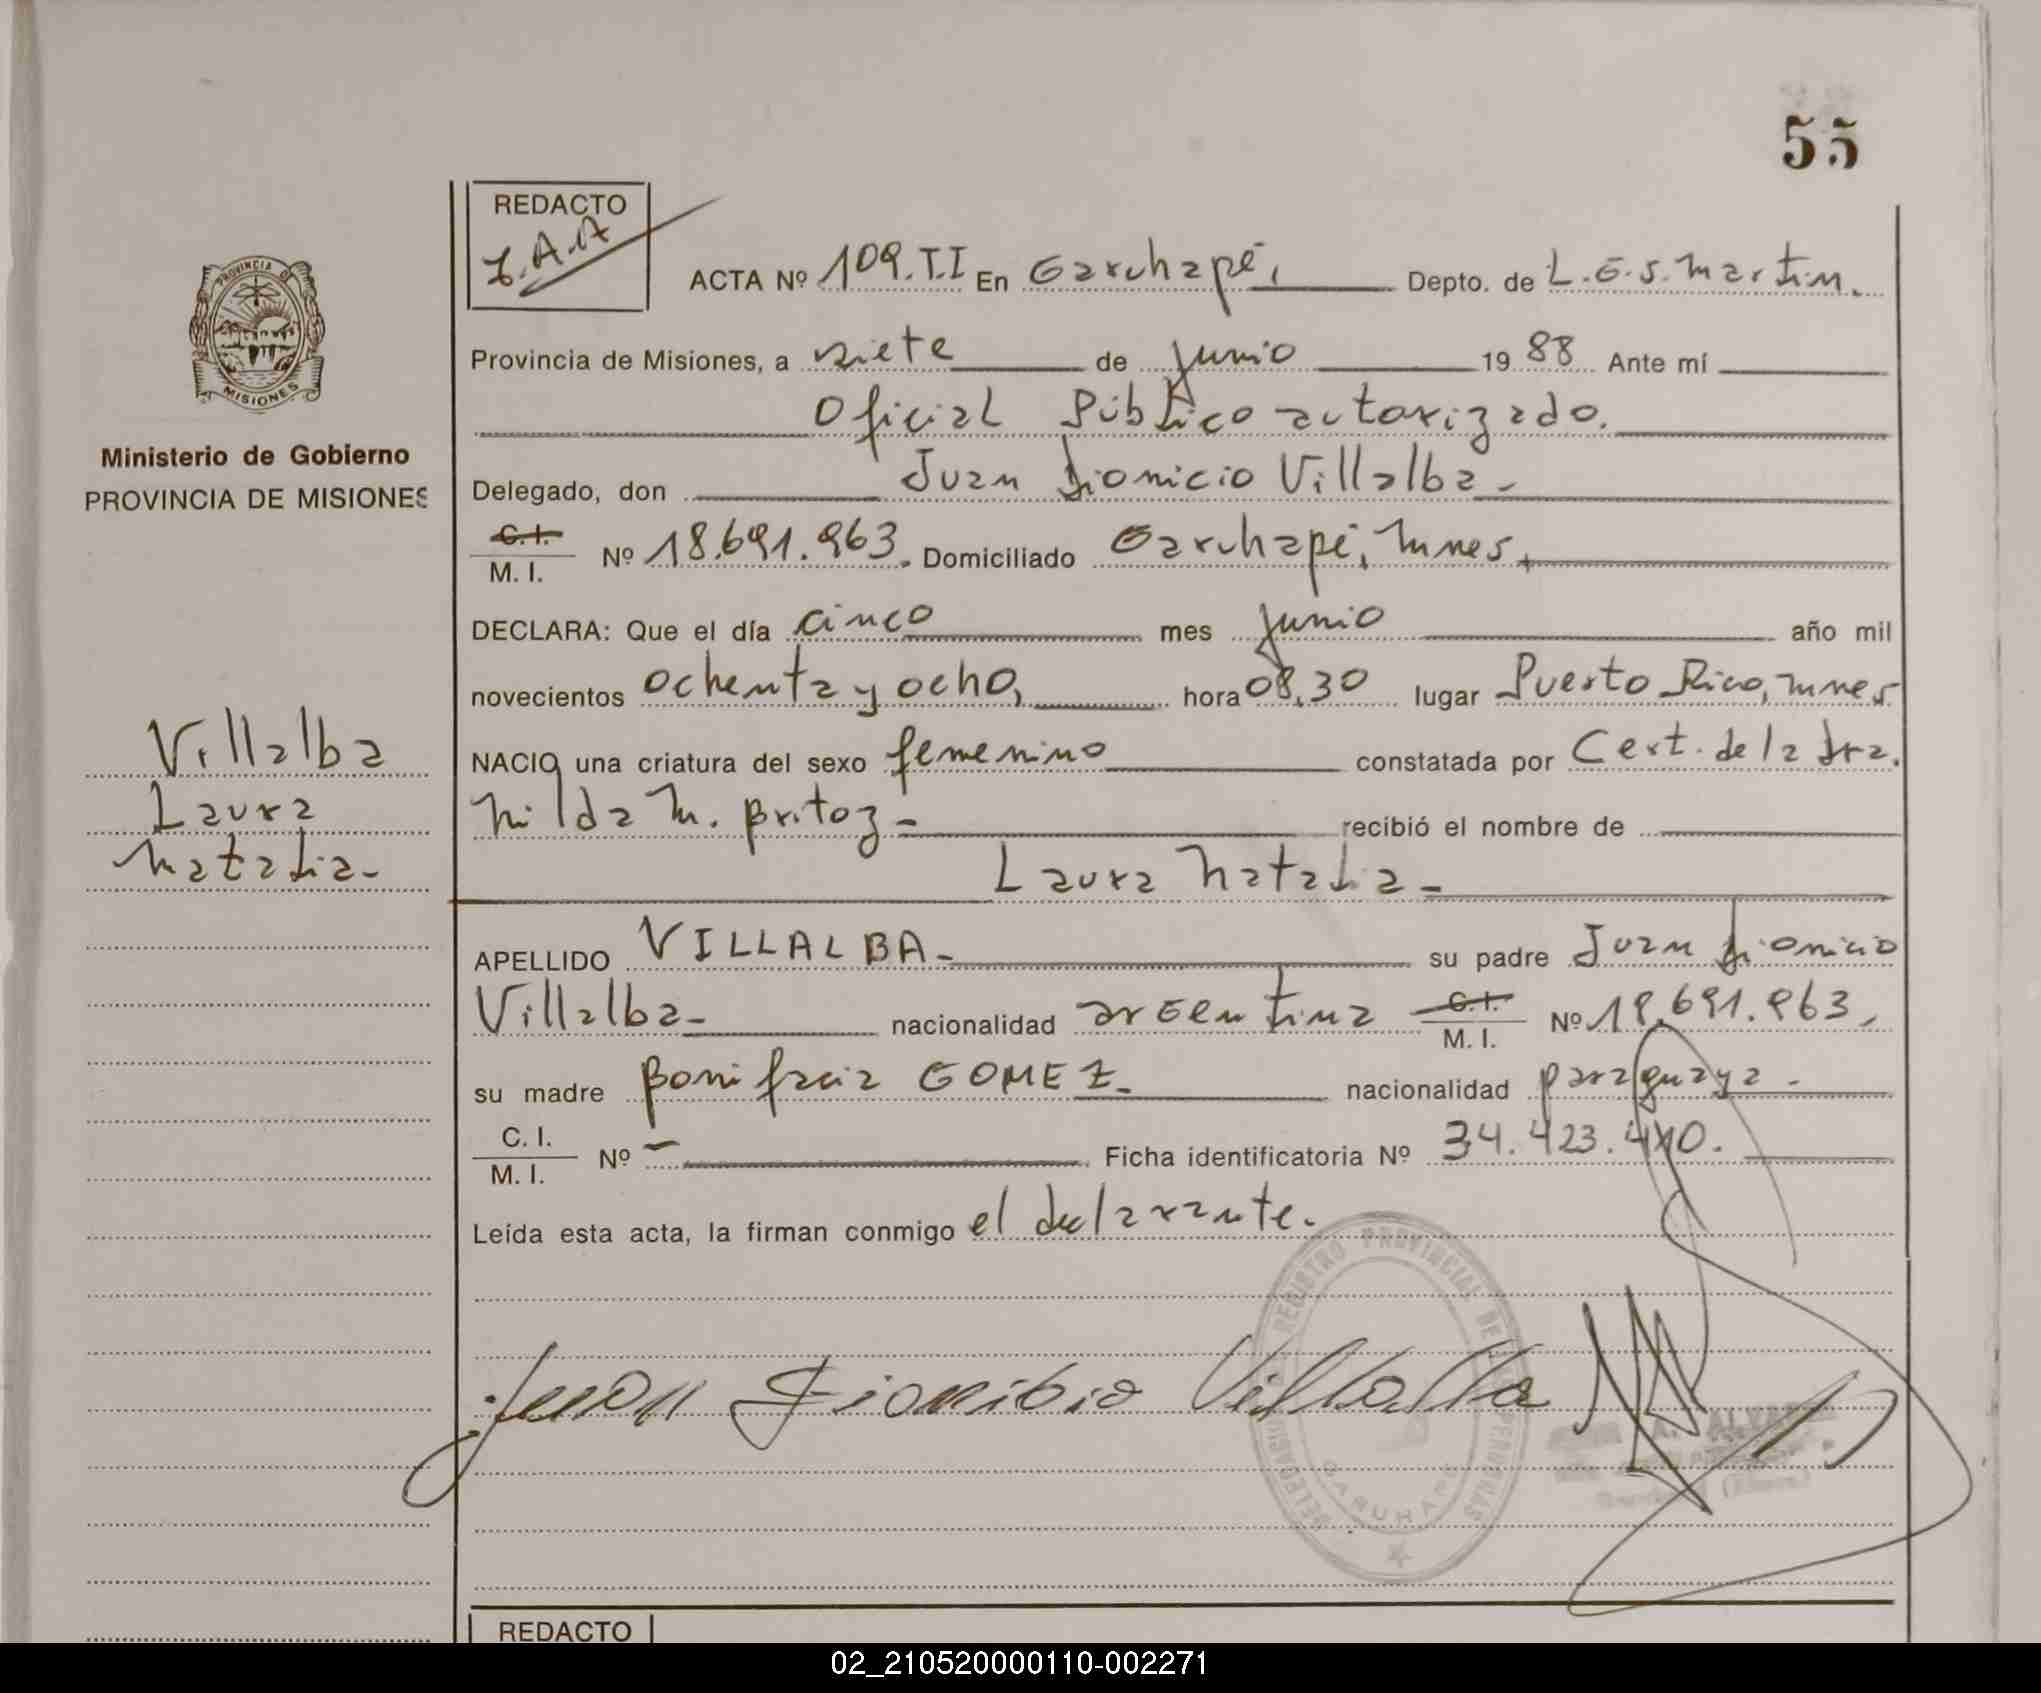 55
REDACTO
ACTA Nº 109.T.I En Garuhapé, Depto. de L.G.S. Martin.
PROVINCIA DE
MISIONES
Provincia de Misiones, a siete de junio 1988 Ante mí
Oficial Público autorizado.
Ministerio de Gobierno
PROVINCIA DE MISIONES
Delegado, don Juan Dionicio Villalba-
C.I. / M. I. Nº 18.691.963. Domiciliado Garuhapé, Mnes,
DECLARA: Que el día cinco mes junio año mil
novecientos ochenta y ocho, hora 08,30 lugar Puerto Rico, Mnes
Villalba
NACIO una criatura del sexo femenino constatada por Cert. de la Dra.
Laura
Nilda M. recibió el nombre de
Natalia-
Laura Natalia-
APELLIDO VILLALBA- su padre Juan Dionicio
Villalba- nacionalidad argentina C.I. / M. I. Nº 18.691.963,
su madre Bonifacia GOMEZ- nacionalidad paraguaya-
C. I. / M. I. Nº - Ficha identificatoria Nº 34.423.410.
Leída esta acta, la firman conmigo el declarante.
REGISTRO PROVINCIAL DE LAS PERSONAS
DELEGACION
GARUHAPE
Juan Dionicio Villalba
REDACTO
02_210520000110-002271